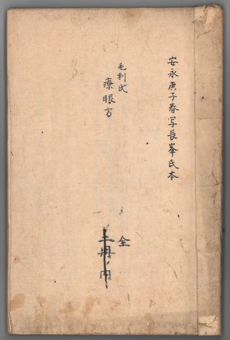 安永庚子春写長峯氏本
毛利氏
療眼方
全
上冊ノ内